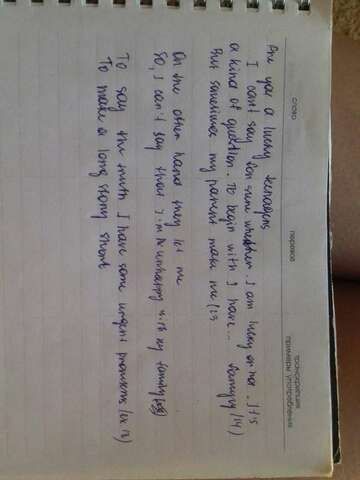 слово перевод транскрипция
примеры употребления
Are you a lucky teenagers
I can't say for sure whether I am lucky or not. It's
a kind of question. To begin with I have... family (14)
But sometimes my parent make me (13
On the other hand they let me
So, I can't say that I'm unhappy with my family
To say the truth I have some urgent problems (ex.12)
To make a long story short